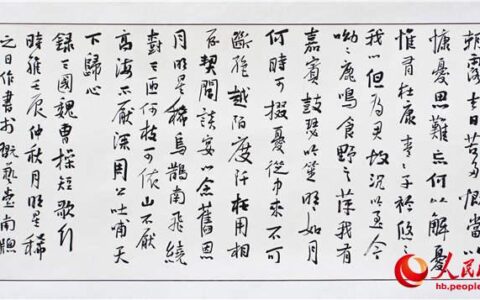 朝露去日苦多慨當以
慷憂思難忘何以解憂
惟有杜康青々子衿悠々
我心但為君故沉吟至今
呦々鹿鳴食野之苹我有
嘉賓鼓瑟吹笙明如月
何時可掇憂從中來不可
斷絕越陌度阡枉用相
存契闊談宴心念舊恩
月明星稀烏鵲南飛繞
樹三匝何枝可依山不厭
高海不厭深周公吐哺天
下歸心
錄三國魏曹操短歌行
時維壬辰仲秋月明星稀
之日作書於藝南牕
人民网
hb.people